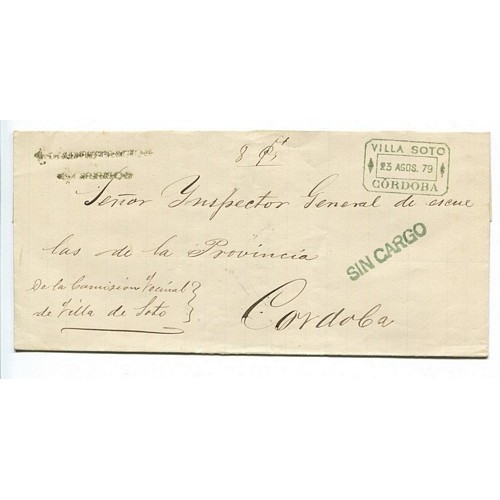 8
VILLA SOTO
23 AGOS. 79
CÓRDOBA
Señor Ynspector General de escue
las de la Provincia
SIN CARGO
De la Comision Vecinal
de Villa de Soto
Cordoba